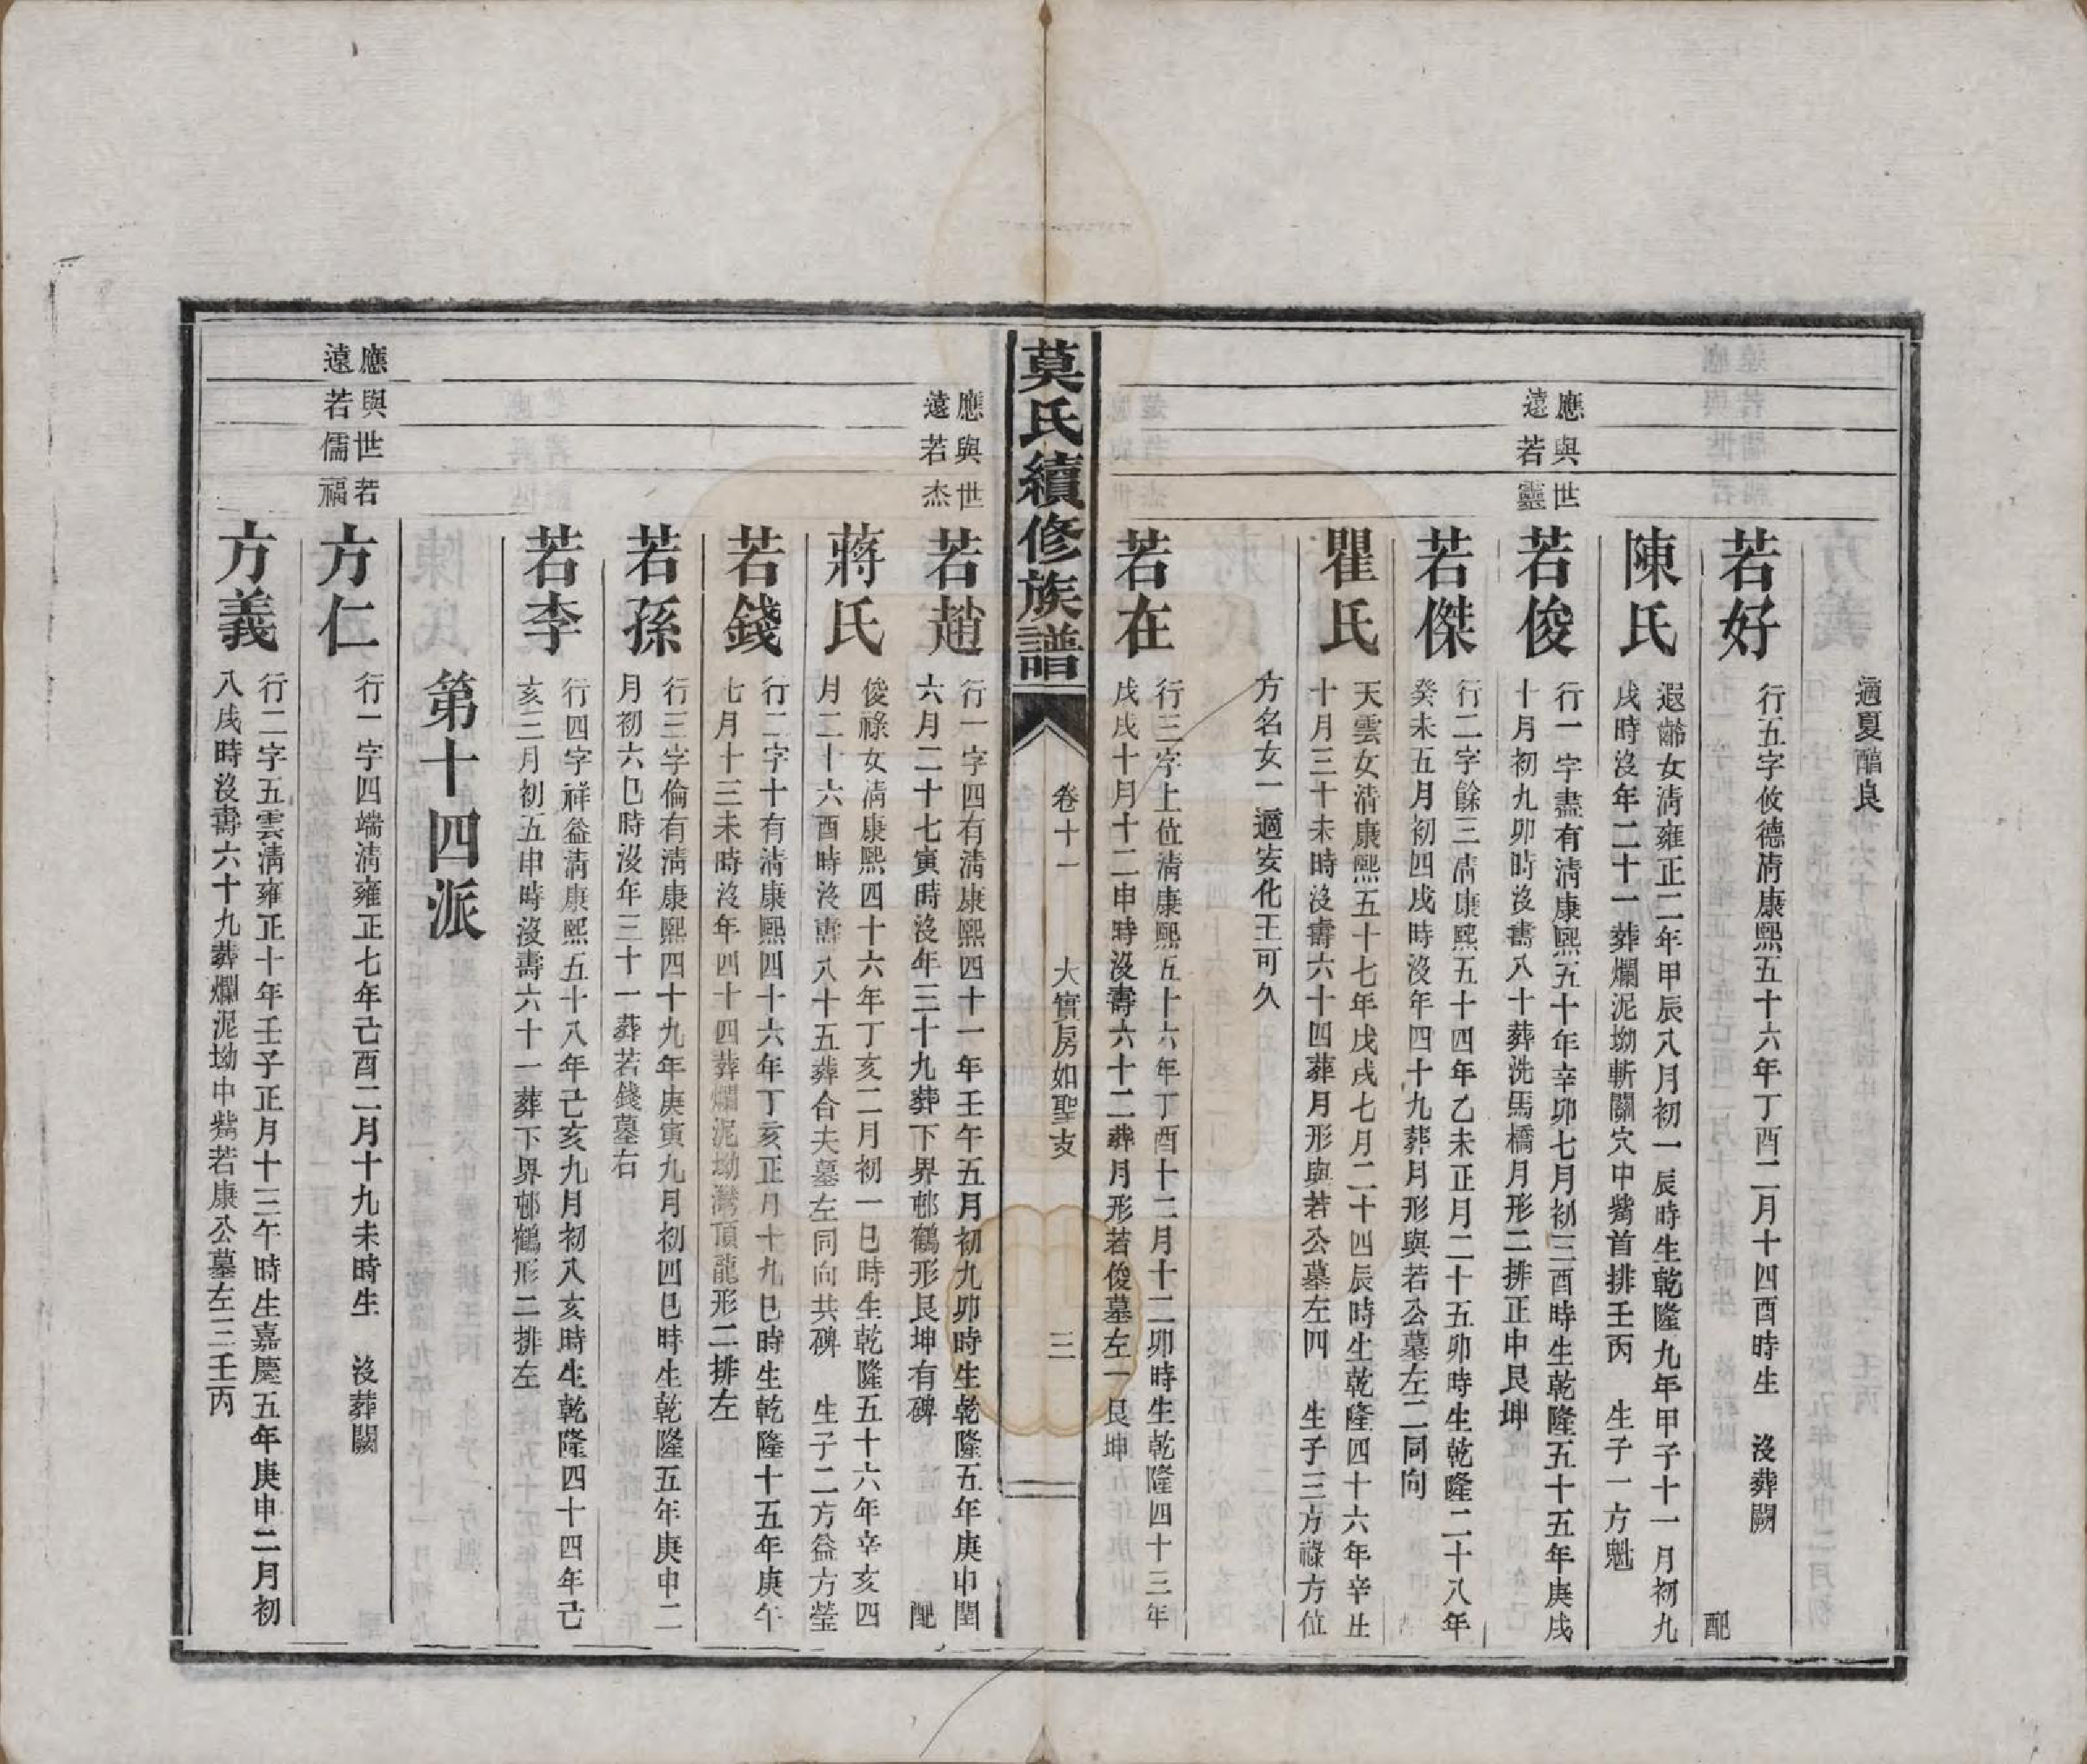 適夏醕良
若好
行五字攸德清康熙五十六年丁酉二月十四酉時生　沒葬闕
配
陳氏
遐齡女清雍正二年甲辰八月初一辰時生乾隆九年甲子十一月初九
戌時沒年二十一葬爛泥坳斬關穴中觜首排壬丙　生子一方魁
應與世
遠若靈
若俊
行一字盡有清康熙五十年辛卯七月初三酉時生乾隆五十五年庚戌
十月初九卯時沒壽八十葬洗馬橋月形二排正中艮坤
若傑
行二字餘三清康熙五十四年乙未正月二十五卯時生乾隆二十八年
癸未五月初四戌時沒年四十九葬月形與若公墓左二同向
瞿氏
天雲女清康熙五十七年戊戌七月二十四辰時生乾隆四十六年辛丑
十月三十未時沒壽六十四葬月形與若公墓左四　生子三方祿方位
方名女一適安化王可久
若在
行三字上位清康熙五十六年丁酉十二月十二卯時生乾隆四十三年
戊戌十月十二申時沒壽六十二葬月形若俊墓左一艮坤
莫氏續修族譜
卷十一
大實房如聖支
三
應與世
遠若杰
若趙
行一字四有清康熙四十一年壬午五月初九卯時生乾隆五年庚申閏
六月二十七寅時沒年三十九葬下界邨鶴形艮坤有碑
配
蔣氏
俊祿女清康熙四十六年丁亥二月初一巳時生乾隆五十六年辛亥四
月二十六酉時沒壽八十五葬合夫墓左同向共碑　生子二方益方瑩
若錢
行二字十有清康熙四十六年丁亥正月十九巳時生乾隆十五年庚午
七月十三未時沒年四十四葬爛泥坳灣頂龍形二排左
若孫
行三字倫有清康熙四十九年庚寅九月初四巳時生乾隆五年庚申二
月初六巳時沒年三十一葬若錢墓右
若李
行四字祥益清康熙五十八年己亥九月初八亥時生乾隆四十四年己
亥三月初五申時沒壽六十一葬下界邨鶴形二排左
第十四派
應與世若
遠若儒福
方仁
行一字四端清雍正七年己酉二月十九未時生　沒葬闕
方義
行二字五雲清雍正十年壬子正月十三午時生嘉慶五年庚申二月初
八戌時沒壽六十九葬爛泥坳中觜若康公墓左三壬丙